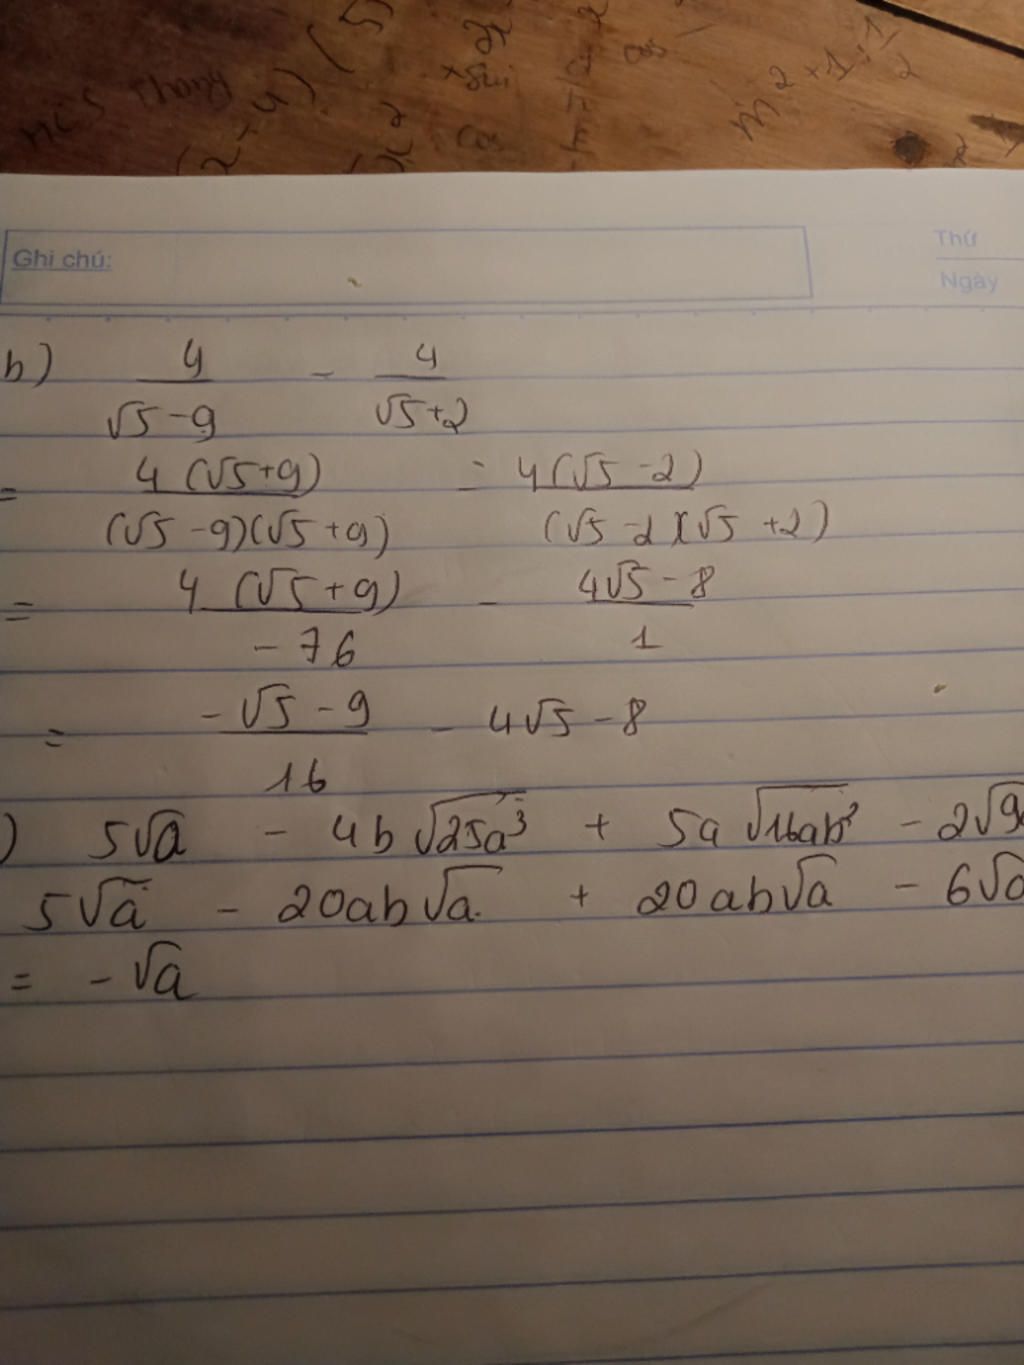 (x-4) (5
x² +sin
cos cos
m²+1:1/2
Ghi chú: Thứ
Ngày
b) 4/(√5-9) - 4/(√5+2)
= 4(√5+9)/((√5-9)(√5+9)) - 4(√5-2)/((√5-2)(√5+2))
= 4(√5+9)/(-76) - (4√5-8)/1
= (-√5-9)/16 - 4√5-8
) 5√a - 4b√25a³ + 5a√16ab² - 2√9
5√a - 20ab√a + 20ab√a - 6√a
= -√a